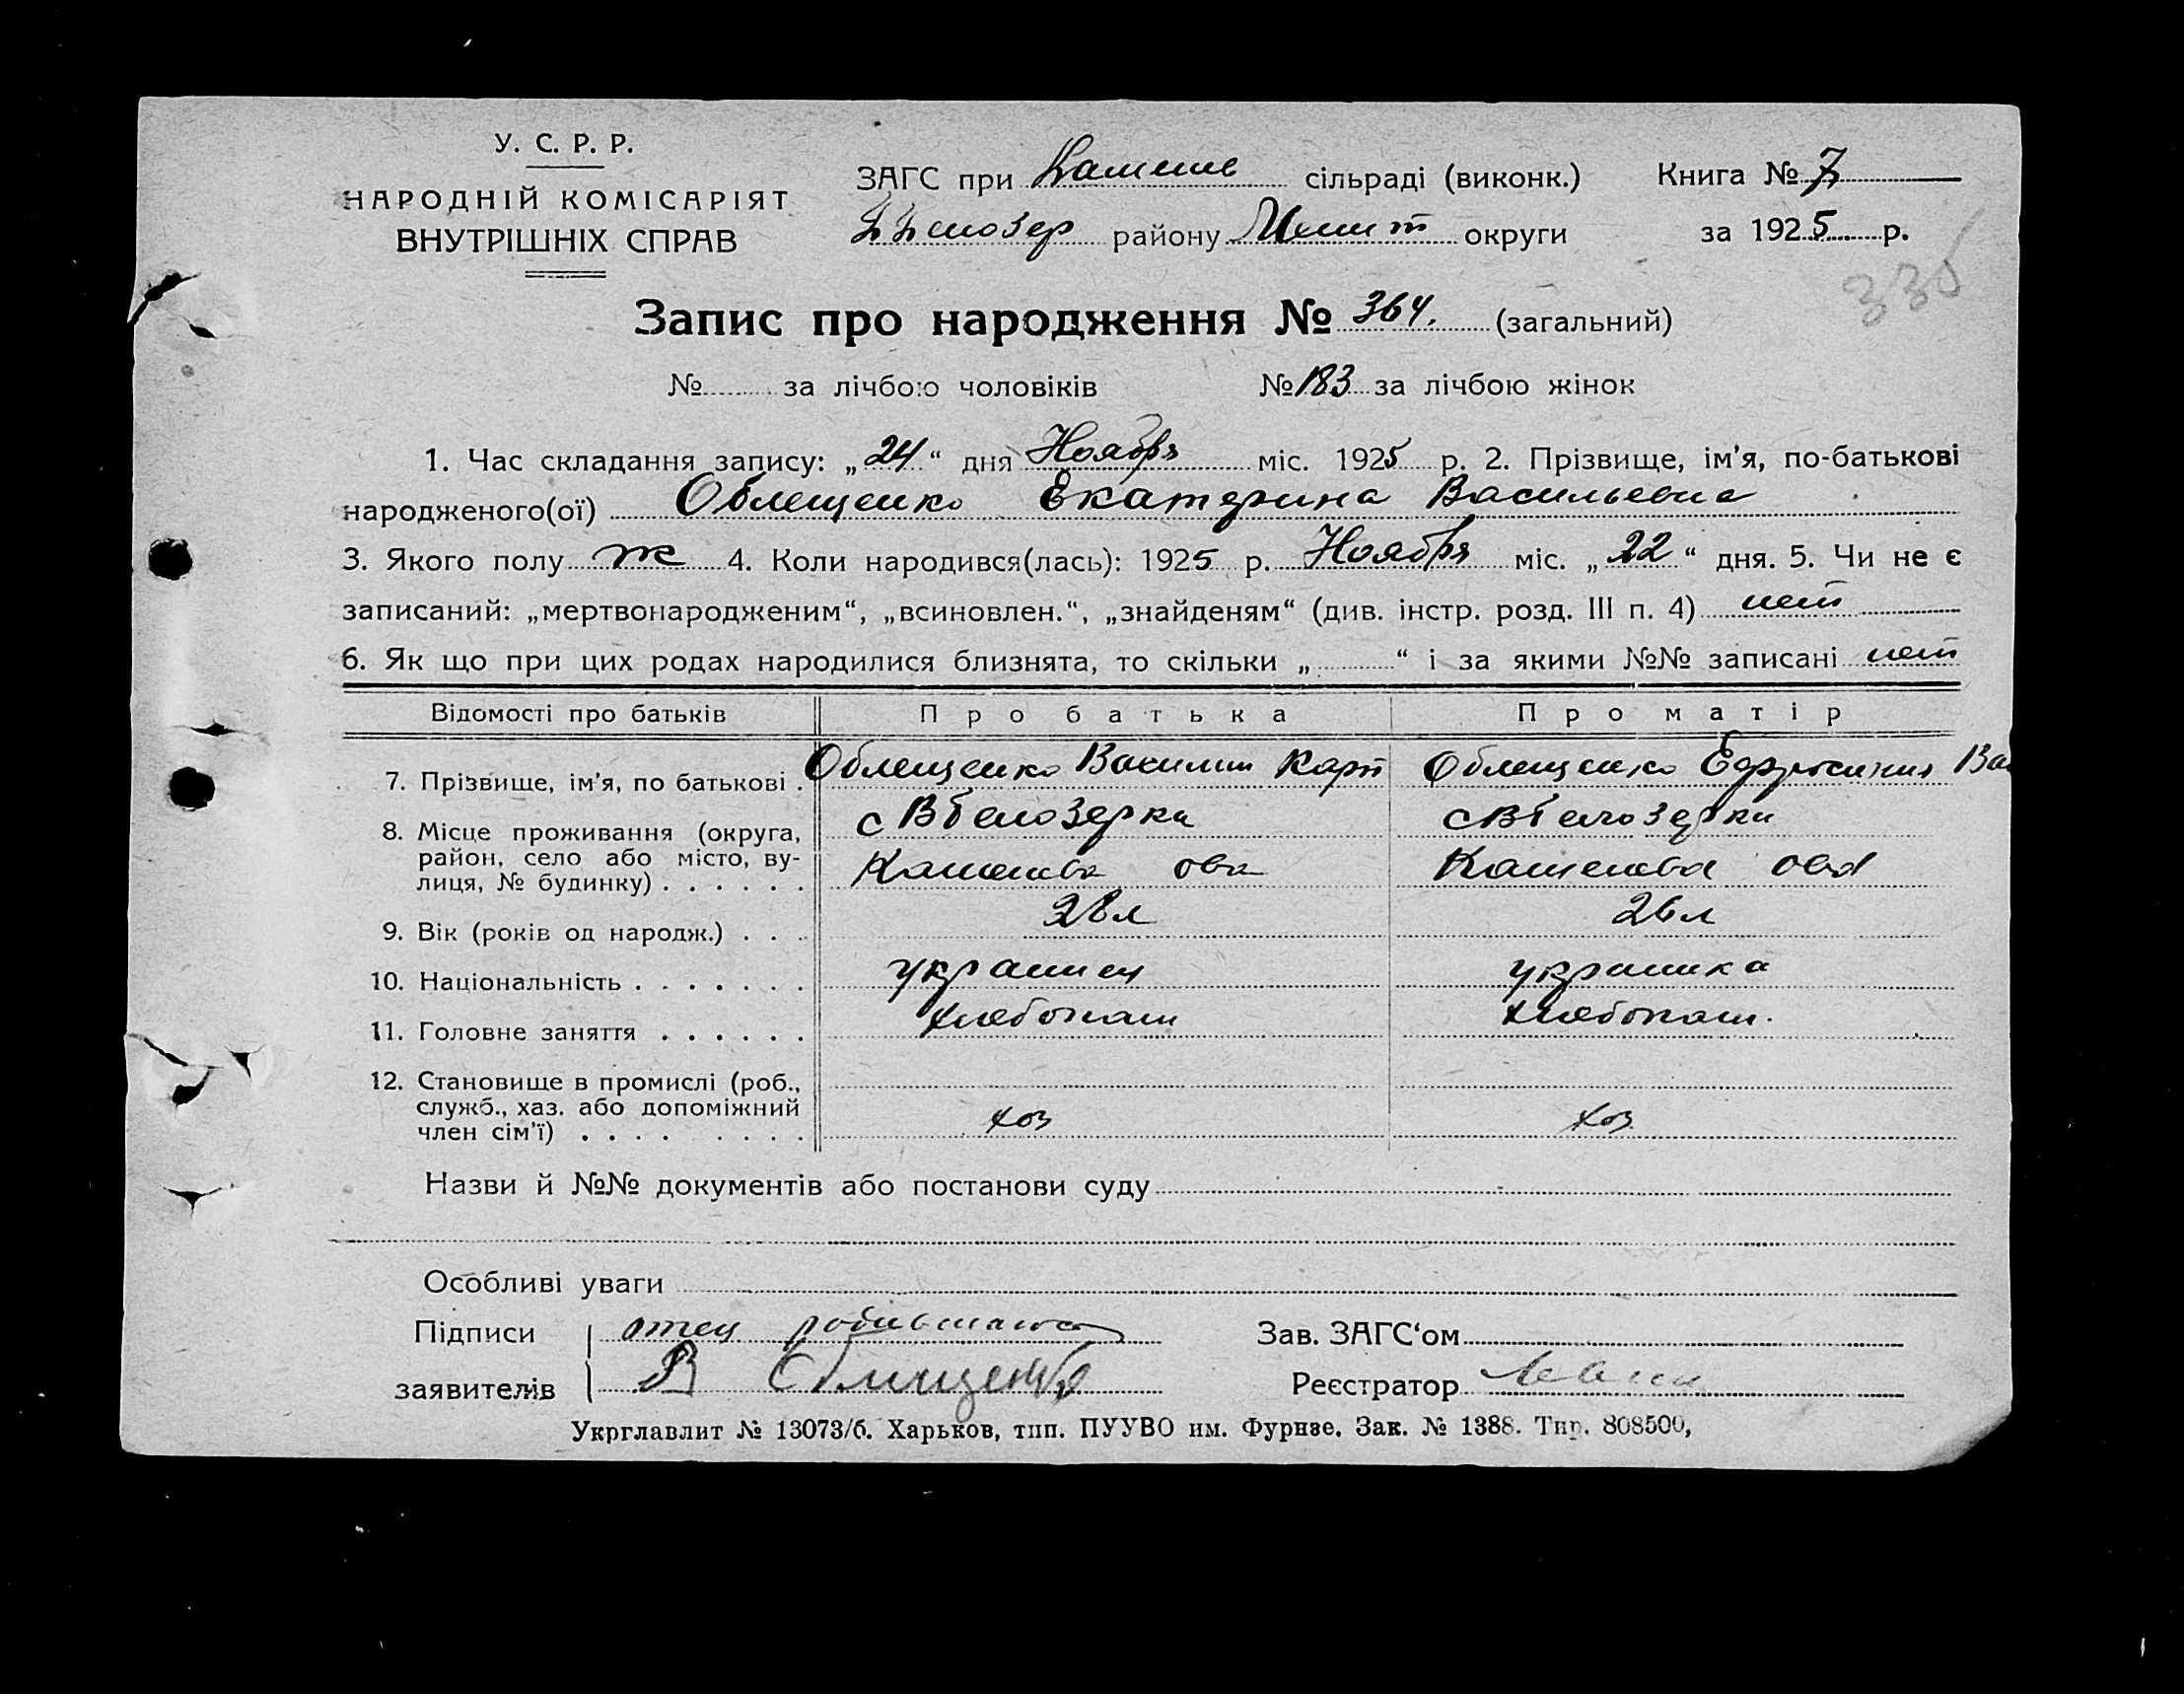 У. С. Р. Р.
НАРОДНІЙ КОМІСАРІЯТ
ВНУТРІШНІХ СПРАВ
ЗАГС при Камене сільраді (виконк.)
Книга № 7
району Мелит округи
за 1925 р.
335
Запис про народження № 364. (загальний)
№ за лічбою чоловіків № 183 за лічбою жінок
1. Час складання запису: „24“ дня Ноября міс. 1925 р. 2. Прізвище, ім'я, по-батькові
народженого(ої) Облещенко Екатерина Васильевна
3. Якого полу ж 4. Коли народився(лась): 1925 р. Ноября міс. „22“ дня. 5. Чи не є
записаний: „мертвонародженим“, „всиновлен.“, „знайденям“ (див. інстр. розд. III п. 4) нет
6. Як що при цих родах народилися близнята, то скільки „ “ і за якими №№ записані нет
Відомості про батьків Про батька Про матір
7. Прізвище, ім'я, по батькові . Облещенко Василий Карп Облещенко Ефросиния Вас
8. Місце проживання (округа, с Вбелозерка с Вбелозерка
район, село або місто, ву-
лиця, № будинку) . . . . . . Каменева ова Каменева ова
9. Вік (років од народж.) . . . 28 л 26 л
10. Національність . . . . . . . украинец украинка
11. Головне заняття . . . . . . хлебопаш хлебопаш.
12. Становище в промислі (роб.,
служб., хаз. або допоміжний
член сім'ї) . . . . . . . . хоз хоз
Назви й №№ документів або постанови суду
Особливі уваги
Підписи отец родившагося Зав. ЗАГС‘ом
заявителів В Облищенко Реєстратор
Укрглавлит № 13073/б. Харьков, тип. ПУУВО им. Фурнзе. Зак. № 1388. Тир. 808500,